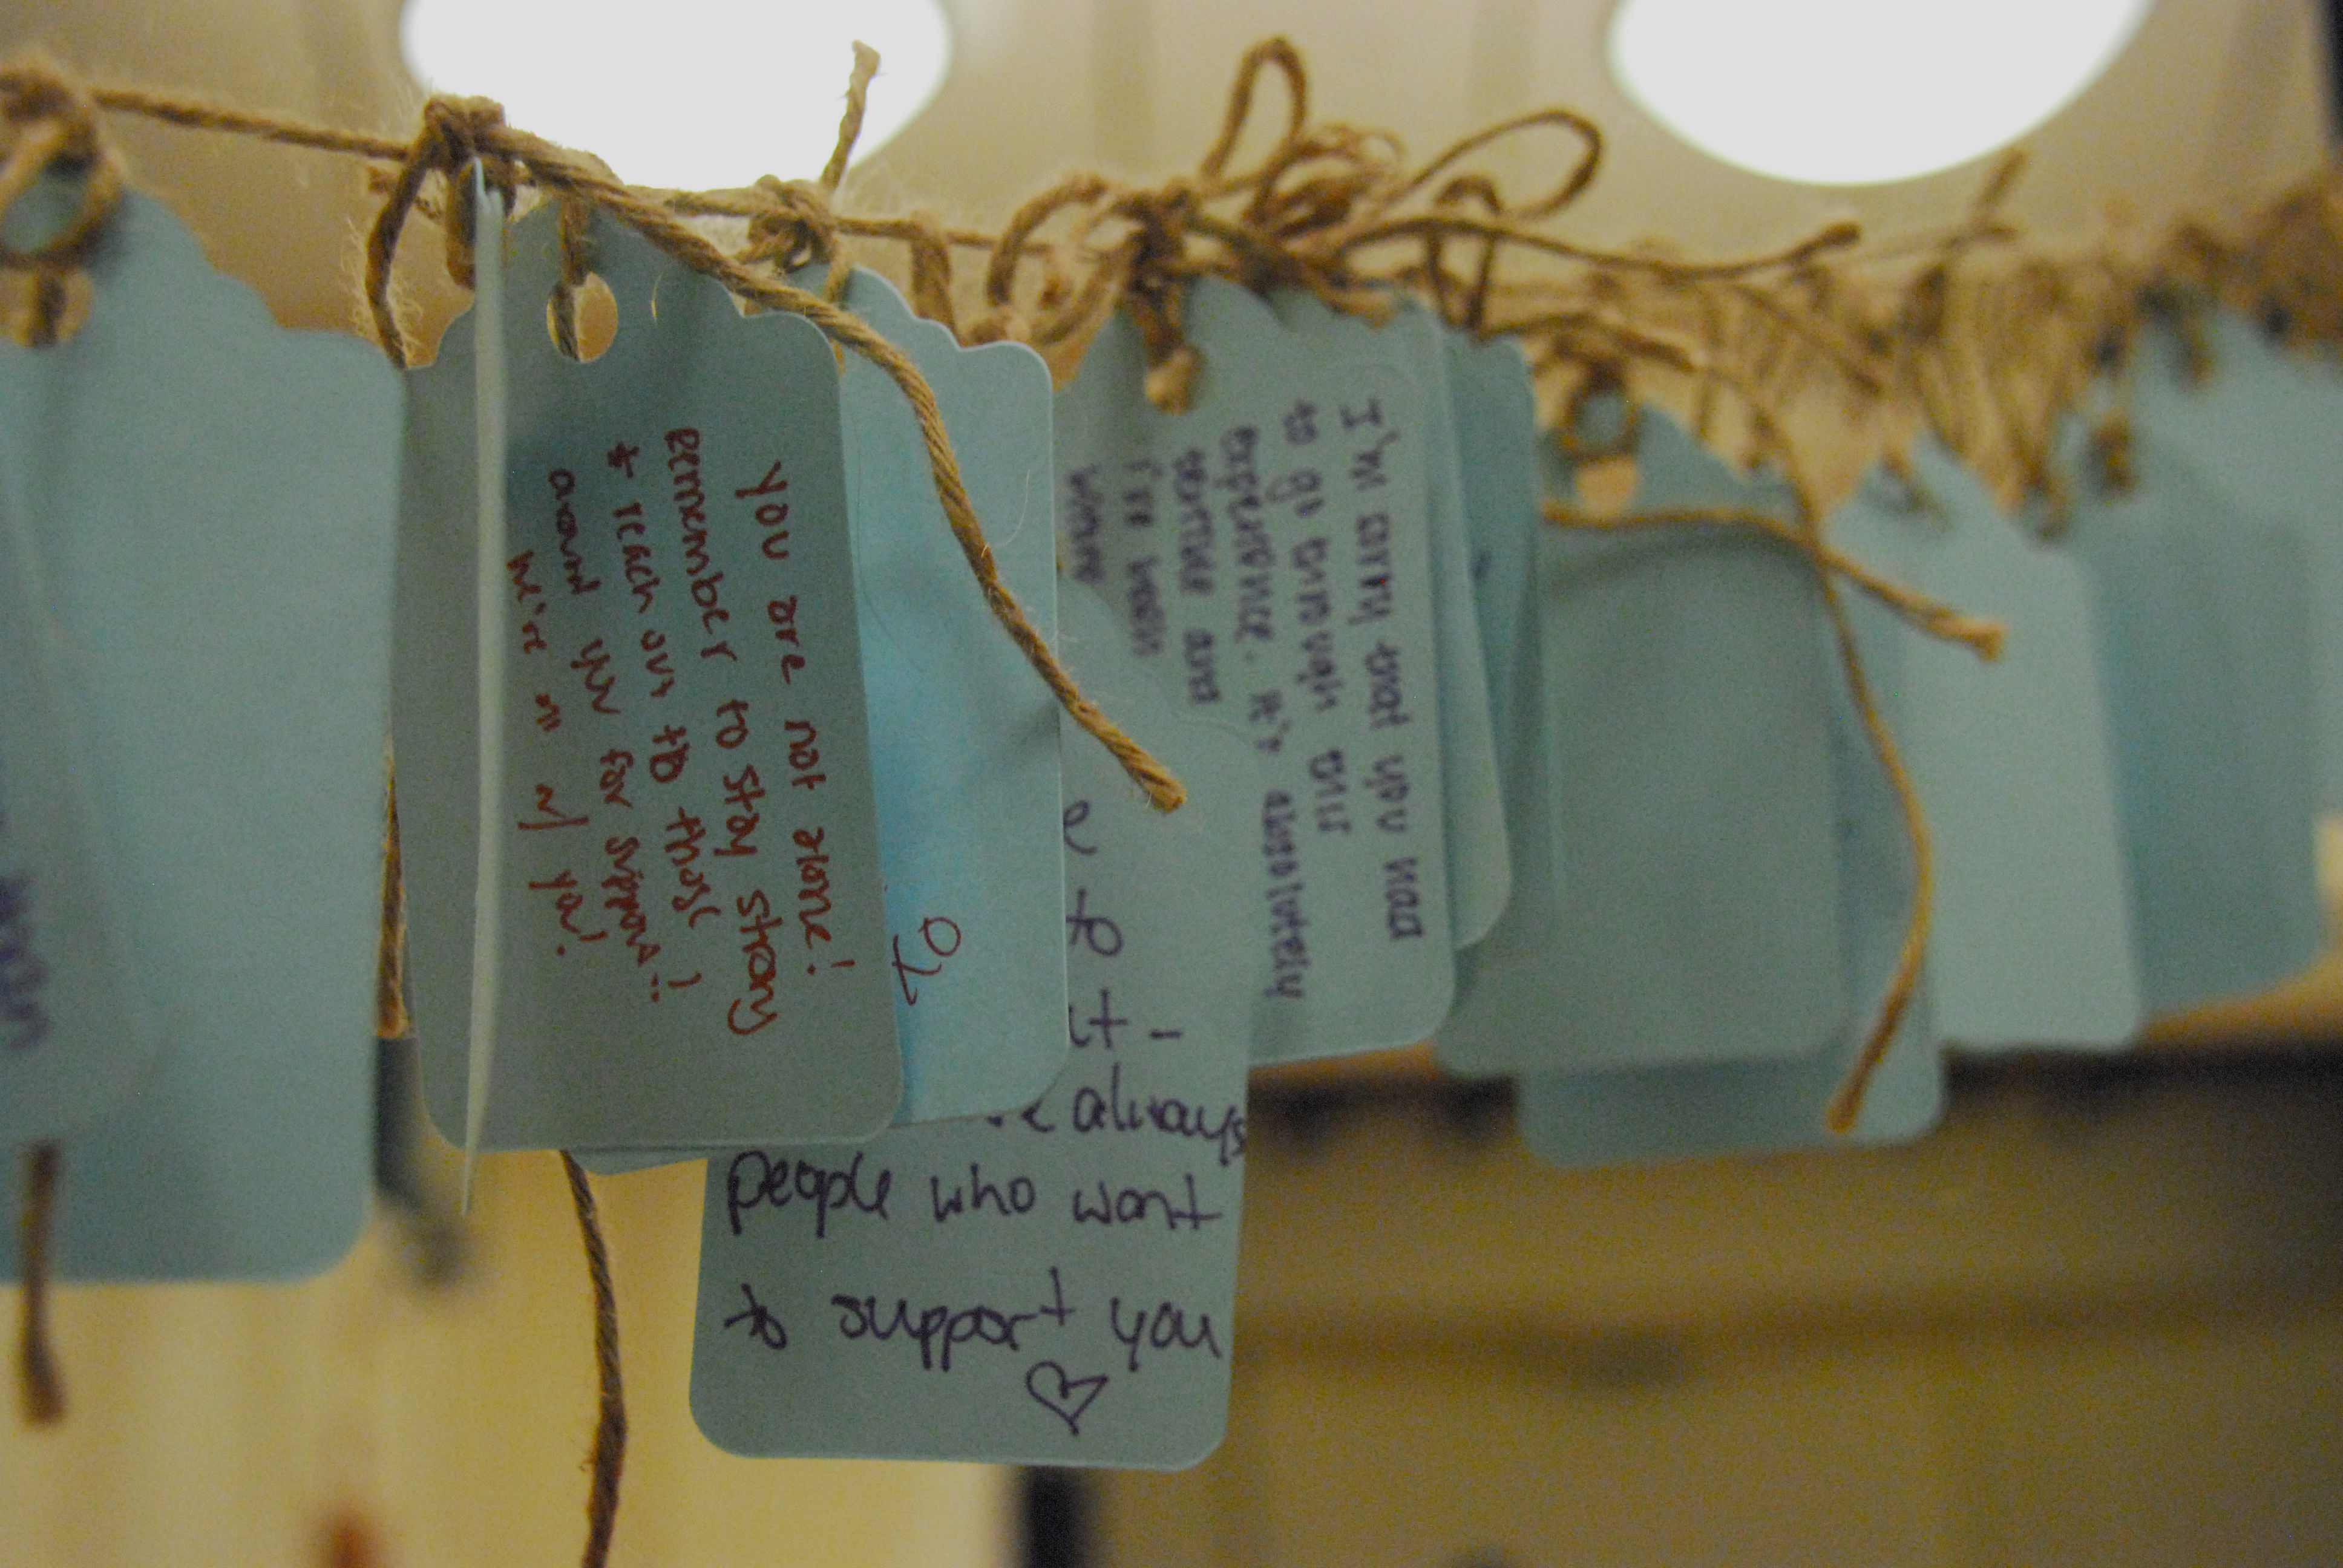 you are not alone!
Remember to stay strong
& reach out to those
around you for support
we're all w/ you!
To
e
of
it -
always
people who want
to support you
I'm sorry that you had
to go through this
experience. It's absolutely
terrible and
I've been